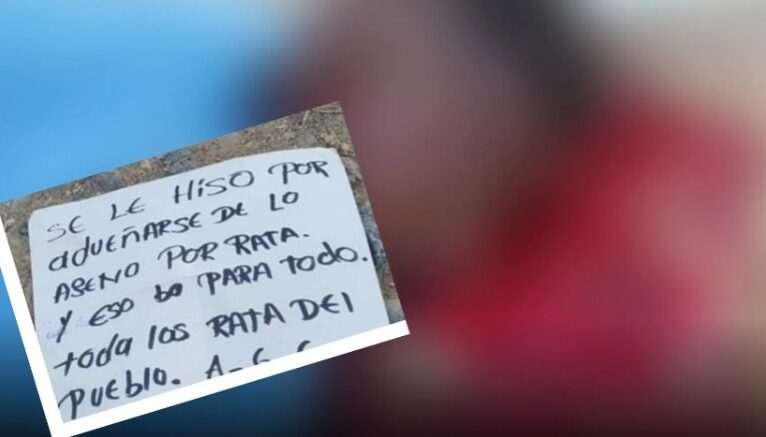 SE LE HISO POR
ADUEÑARSE DE LO
ASENO POR RATA.
Y ESO PARA TODO.
toda los RATA DEL
PUEBLO.